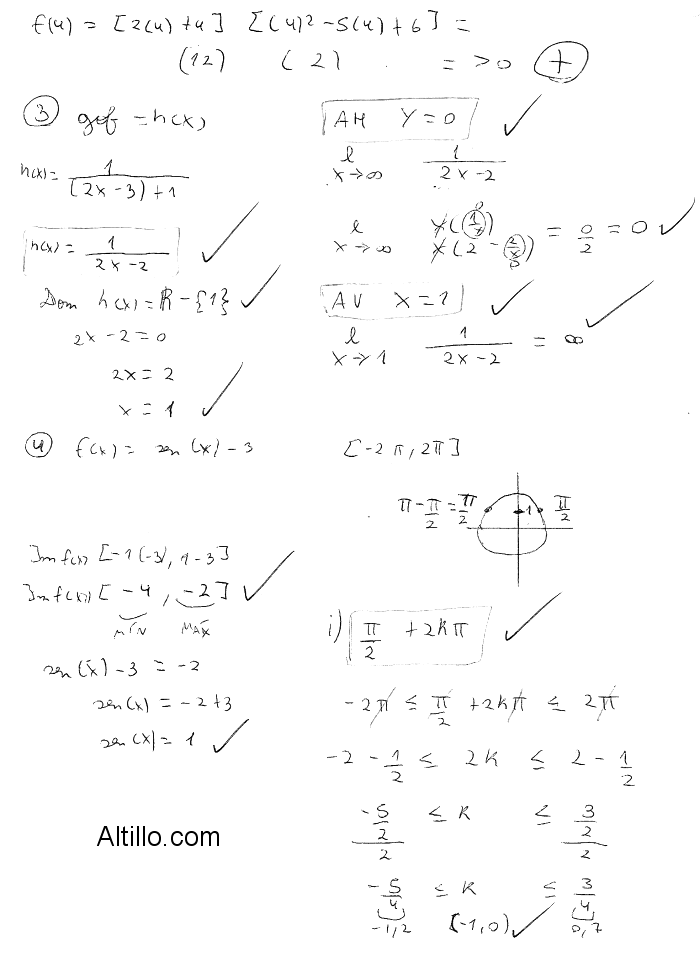 f(4) = [2(4) + 4] [(4)² - 5(4) + 6] =
(12) (2) = > 0 +
③ gof = h(x)
h(x) = 1 / ((2x - 3) + 1)
h(x) = 1 / (2x - 2)
Dom h(x) = R - {1}
2x - 2 = 0
2x = 2
x = 1
AH Y = 0
l x→∞ 1 / (2x - 2)
l x→∞ x(1/x) / x(2 - 2/x) = 0/2 = 0
AV X = 1
l x→1 1 / (2x - 2) = ∞
④ f(x) = sen(x) - 3 [-2π, 2π]
Im f(x) [-1(-3), 1 - 3]
Im f(x) [-4, -2]
MÍN MAX
sen(x) - 3 = -2
sen(x) = -2 + 3
sen(x) = 1
π - π/2 = π/2 1 π/2
i) π/2 + 2kπ
-2π ≤ π/2 + 2kπ ≤ 2π
-2 - 1/2 ≤ 2k ≤ 2 - 1/2
(-5/2)/2 ≤ k ≤ (3/2)/2
-5/4 ≤ k ≤ 3/4
-1,2 [-1,0) 0,7
Altillo.com